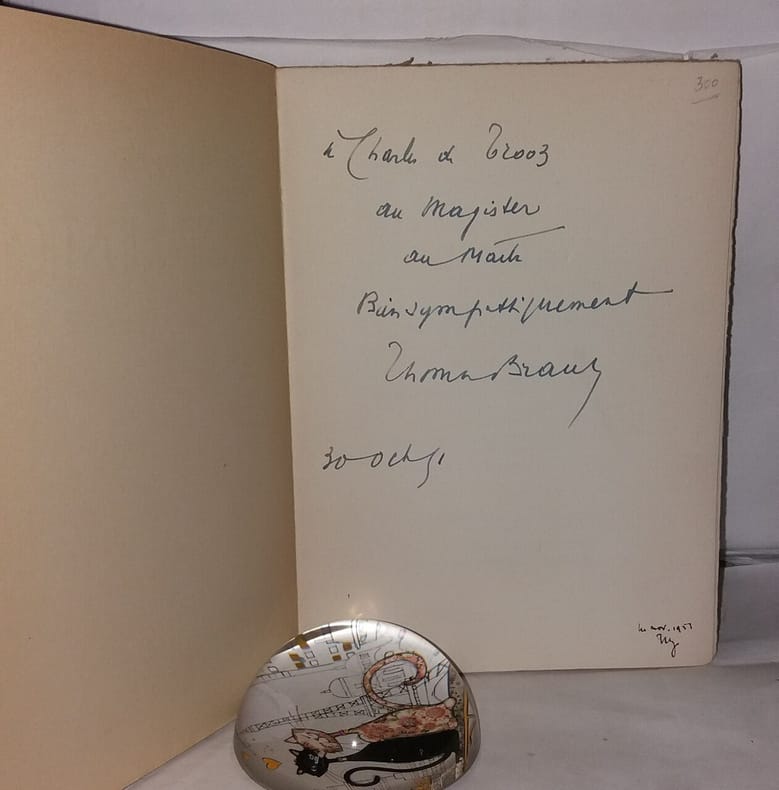 300
à Charles de Trooz
au Magister
au Maître
Bien sympathiquement
Thomas Braun
30 Oct 51
nov. 1951